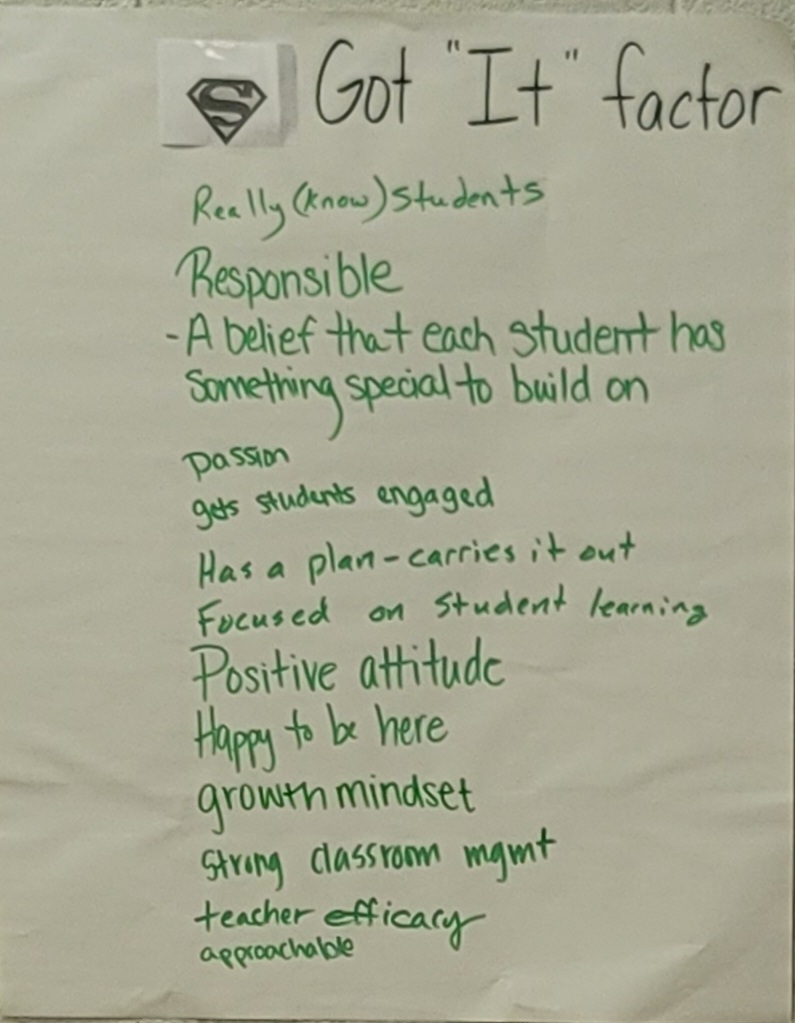 S Got "It" factor
Really (know) students
Responsible
- A belief that each student has
something special to build on
passion
gets students engaged
Has a plan - carries it out
Focused on student learning
Positive attitude
Happy to be here
growth mindset
strong classroom mgmt
teacher efficacy
approachable